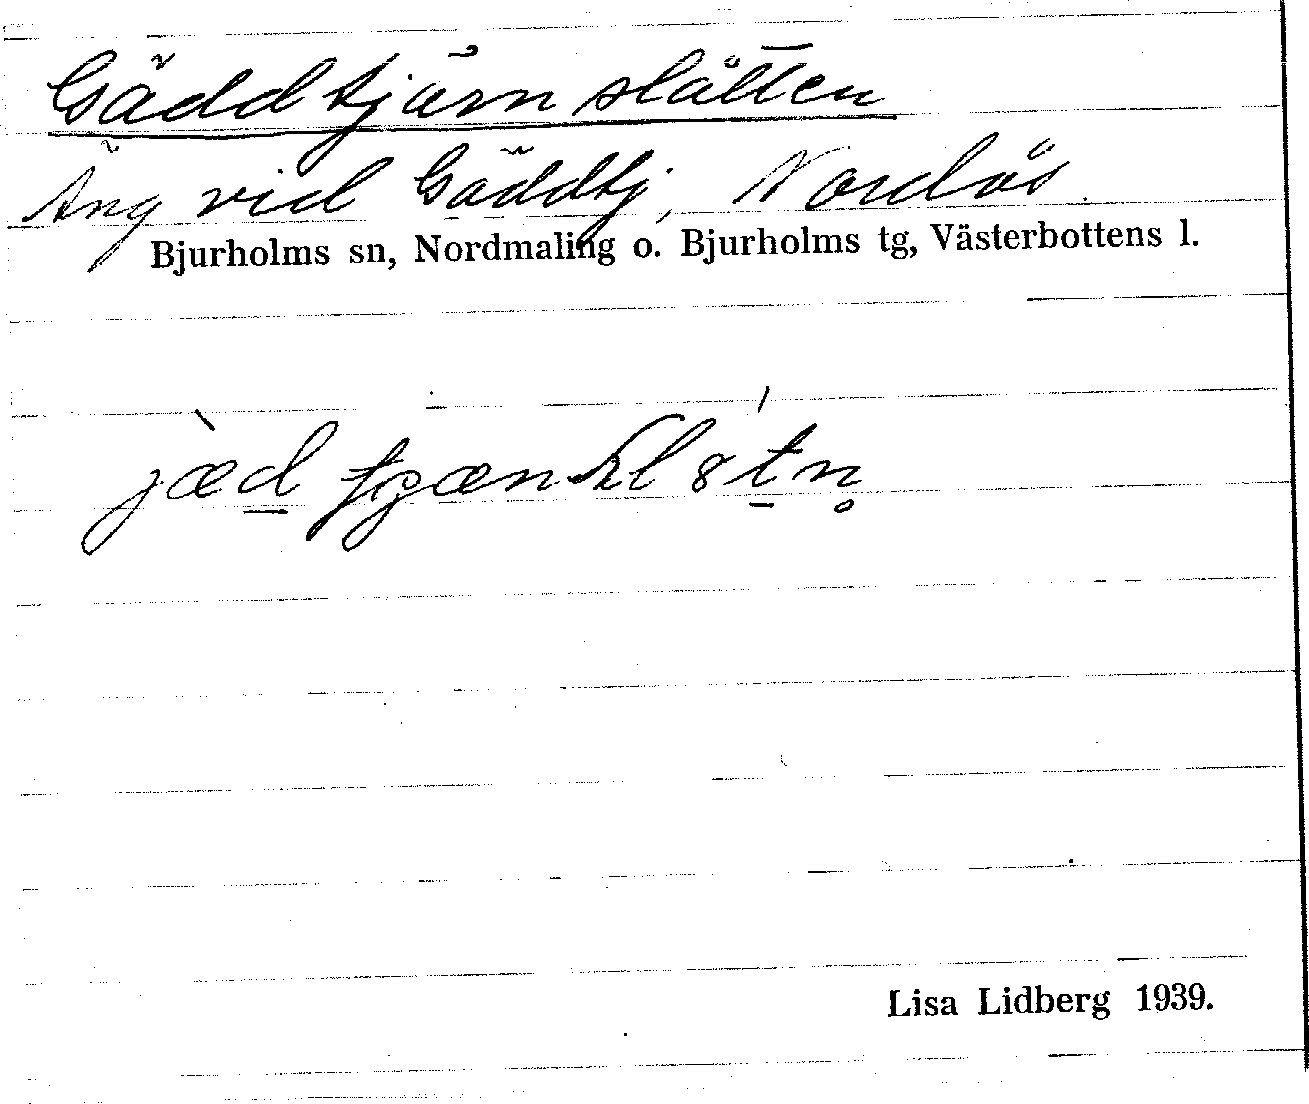 Gäddtjärnslåtten
Äng vid Gäddtj, Nordås.
Bjurholms sn, Nordmaling o. Bjurholms tg, Västerbottens l.
Lisa Lidberg 1939.